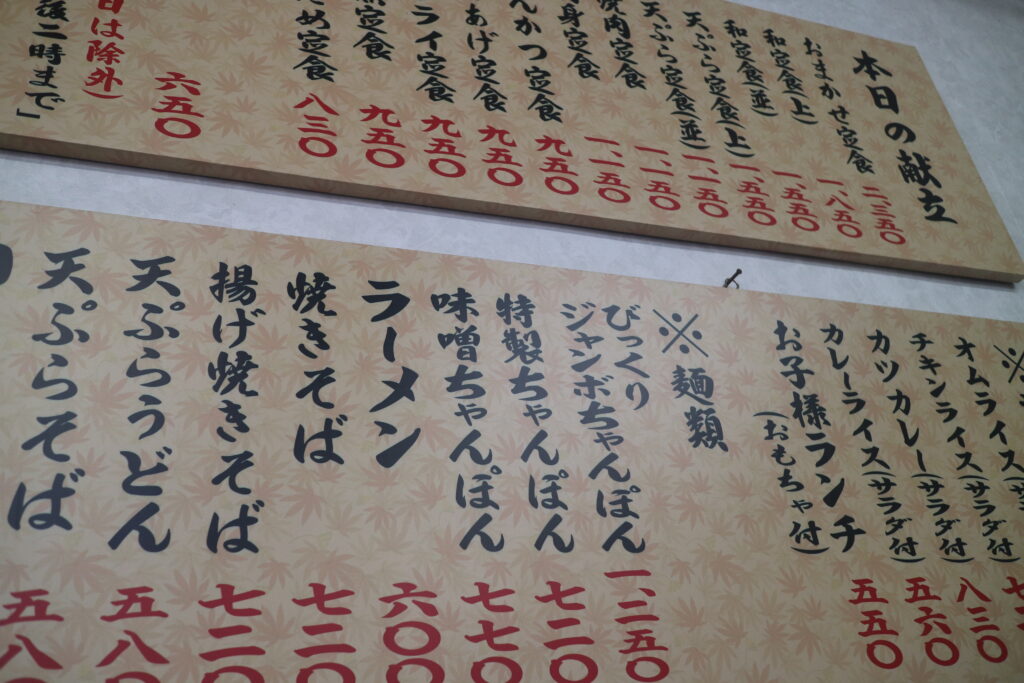 本日の献立
おまかせ定食 二、三五〇
和定食(上) 一、八五〇
和定食(並) 一、五五〇
天ぷら定食(上) 一、五五〇
天ぷら定食(並) 一、一五〇
焼肉定食 一、一五〇
身定食 一、一五〇
んかつ定食 九五〇
あげ定食 九五〇
ライ定食 九五〇
定食 九五〇
ため定食 八三〇
六五〇
日は除外)
後二時まで」
※
オムライス(サ
チキンライス(サラダ付) 七
カツカレー(サラダ付) 八三〇
カレーライス(サラダ付) 五六〇
お子様ランチ 五五〇
(おもちゃ付)
※麺類
びっくり
ジャンボちゃんぽん 一、二五〇
特製ちゃんぽん 七二〇
味噌ちゃんぽん 七七〇
ラーメン 六〇〇
焼きそば 七二〇
揚げ焼きそば 七二〇
天ぷらうどん 五八〇
天ぷらそば 五八〇